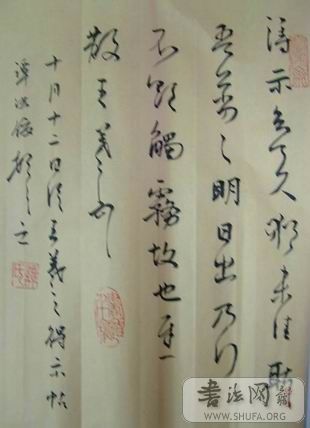 得示知足下猶未佳耿
吾亦劣々明日出乃行
不欲觸霧故也遲
散王羲之頓首
十月十二日臨王羲之得示帖
書法网
WWW.SHUFA.ORG